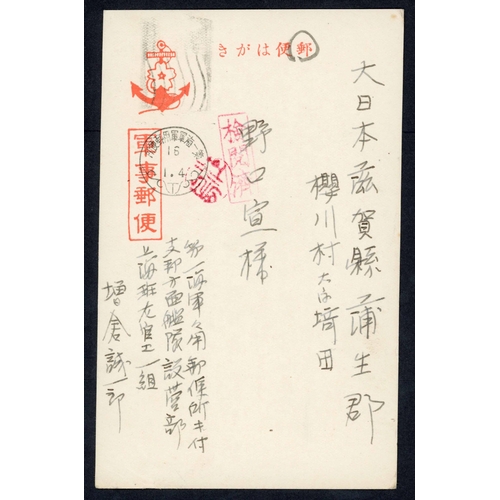 郵便はがき
大日本滋賀縣蒲生郡
櫻川村大字
田
野口宣一様
検閲済
軍事郵便
16
1.4
第一海軍軍用郵便所氣付
支那方面艦隊設営部
上海班左官工一組
増倉誠一郎